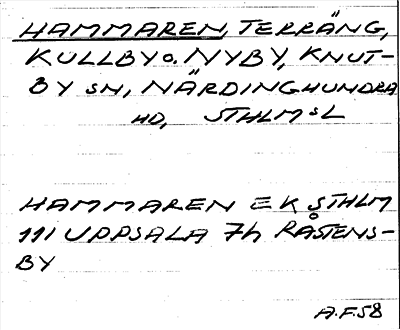 HAMMAREN, TERRÄNG,
KULLBY O. NYBY, KNUT-
BY SN, NÄRDINGHUNDRA
HD, STHLMSL
HAMMAREN EK STHLM
111 UPPSALA 7h RASTENS-
BY
A.F.58